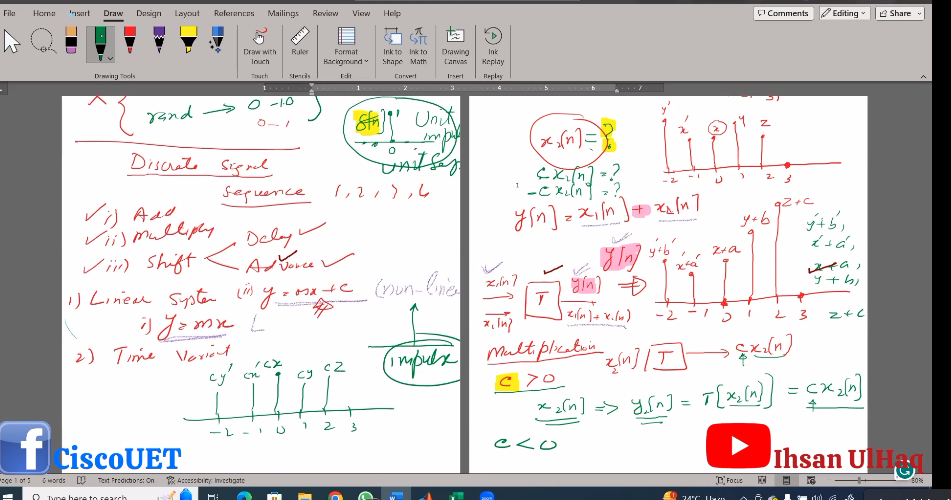 File Home Insert Draw Design Layout References Mailings Review View Help
Comments Editing Share
Draw with Touch
Ruler
Format Background
Ink to Shape
Ink to Math
Drawing Canvas
Ink Replay
Drawing Tools Touch Stencils Edit Convert Insert Replay
rand → 0 -10
0 - 1
δ[n] 1 Unit
0 impu
Unit Seq
Discrete Signal
sequence 1, 2, 3, 6
i) Add
ii) Multiply
Delay
iii) Shift
Advance
1) Linear System (ii) y = mx + c (non-linea
i) y = mx
2) Time Variant
impulse
cy' cx' cx cy cz
-2 -1 0 1 2 3
CiscoUET
y' x' x y z
-2 -1 0 1 2 3
x₂[n] = ?
c x₂[n] = ?
-c x₂[n] = ?
y[n] = x₁[n] + x₂[n]
y[n]
x₁[n]
T
y[n] ⇒
x₁[n]
x₁[n] + x₁[n]
y'+b' x'+a' x+a y+b z+c
-2 -1 0 1 2 3
y'+b',
x'+a',
x+a,
y+b,
z+c
Multiplication x₂[n] T → c x₂[n]
c > 0
x₂[n] ⇒ y₂[n] = T[x₂[n]] = c x₂[n]
c < 0
Ihsan UlHaq
Page 1 of 5 6 words Text Predictions: On Accessibility: Investigate
Focus
80%
Type here to search
24°C